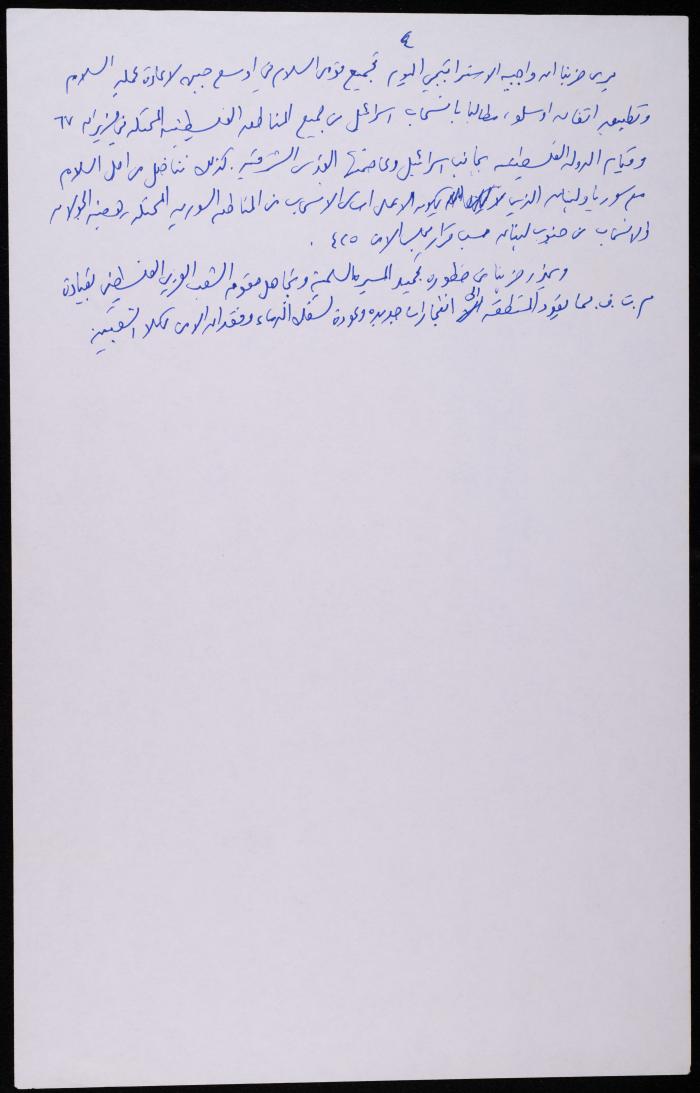 ٤
يرى حزبنا ان واجبه الاستراتيجي اليوم تجميع قوى السلام في اوسع جبهه لاعادة عمليه السلام
وتطبيق اتفاق اوسلو، مطالبا بانسحاب اسرائيل من جميع المناطق الفلسطينيه المحتله في حزيران ٦٧
وقيام الدوله الفلسطينيه بجانب اسرائيل وعاصمتها القدس الشرقيه. كذلك نناضل من اجل السلام
مع سوريا ولبنان الذي يكون على اساس الانسحاب من المناطق السوريه المحتله وهضبه الجولان
والانسحاب من جنوب لبنان حسب قرار مجلس الامن ٤٢٥.
ويحذر حزبنا من خطوره تجميد المسيره السلميه وتجاهل حقوق الشعب العربي الفلسطيني بقيادة
م.ت.ف. مما يقود المنطقه الى انفجارات جديده وعودة لسفك الدماء وفقدان الامن لكلا الشعبين